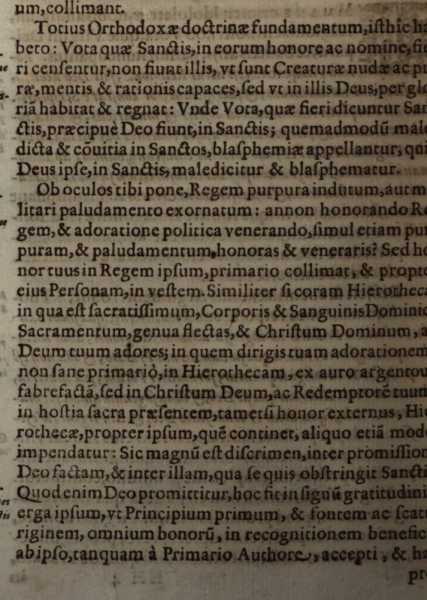 um, collimant.
Totius Orthodoxæ doctrinæ fundamentum, isthîc ha
beto: Vota quæ Sanctis, in eorum honore ac nomine, fie
ri censentur, non fiunt illis, vt sunt Creaturæ nudæ ac pu
ræ, mentis & rationis capaces, sed vt in illis Deus, per glo
riã habitat & regnat: Vnde Vota, quæ fieri dicuntur San
ctis, præcipuè Deo fiunt, in Sanctis; quemadmodũ male
dicta & cõuitia in Sanctos, blasphemiæ appellantur, qui
Deus ipse, in Sanctis, maledicitur & blasphematur.
Ob oculos tibi pone, Regem purpura indutum, aut mi
litari paludamento exornatum: annon honorando Re
gem, & adoratione politica venerando, simul etiam pur
puram, & paludamentum, honoras & veneraris? Sed ho
nor tuus in Regem ipsum, primario collimat, & propte
eius Personam, in vestem. Similiter si coram Hierotheca
in qua est sacratissimum, Corporis & Sanguinis Dominic
Sacramentum, genua flectas, & Christum Dominum, a
Deum tuum adores; in quem dirigis tuam adorationem
non sane primariò, in Hierothecam, ex auro argentoue
fabrefactã, sed in Christum Deum, ac Redemptorē tuum
in hostia sacra præsentem, tametsi honor externus, Hie
rothecæ, propter ipsum, quē continet, aliquo etiã modo
impendatur: Sic magnũ est discrimen, inter promission
Deo factam, & inter illam, qua se quis obstringit Sancti
Quod enim Deo promittitur, hoc fit in signũ gratitudini
erga ipsum, vt Principium primum, & fontem ac scatu
riginem, omnium bonorũ, in recognitionem benefici
ab ipso, tanquam à Primario Authore, accepti, & ha
pr